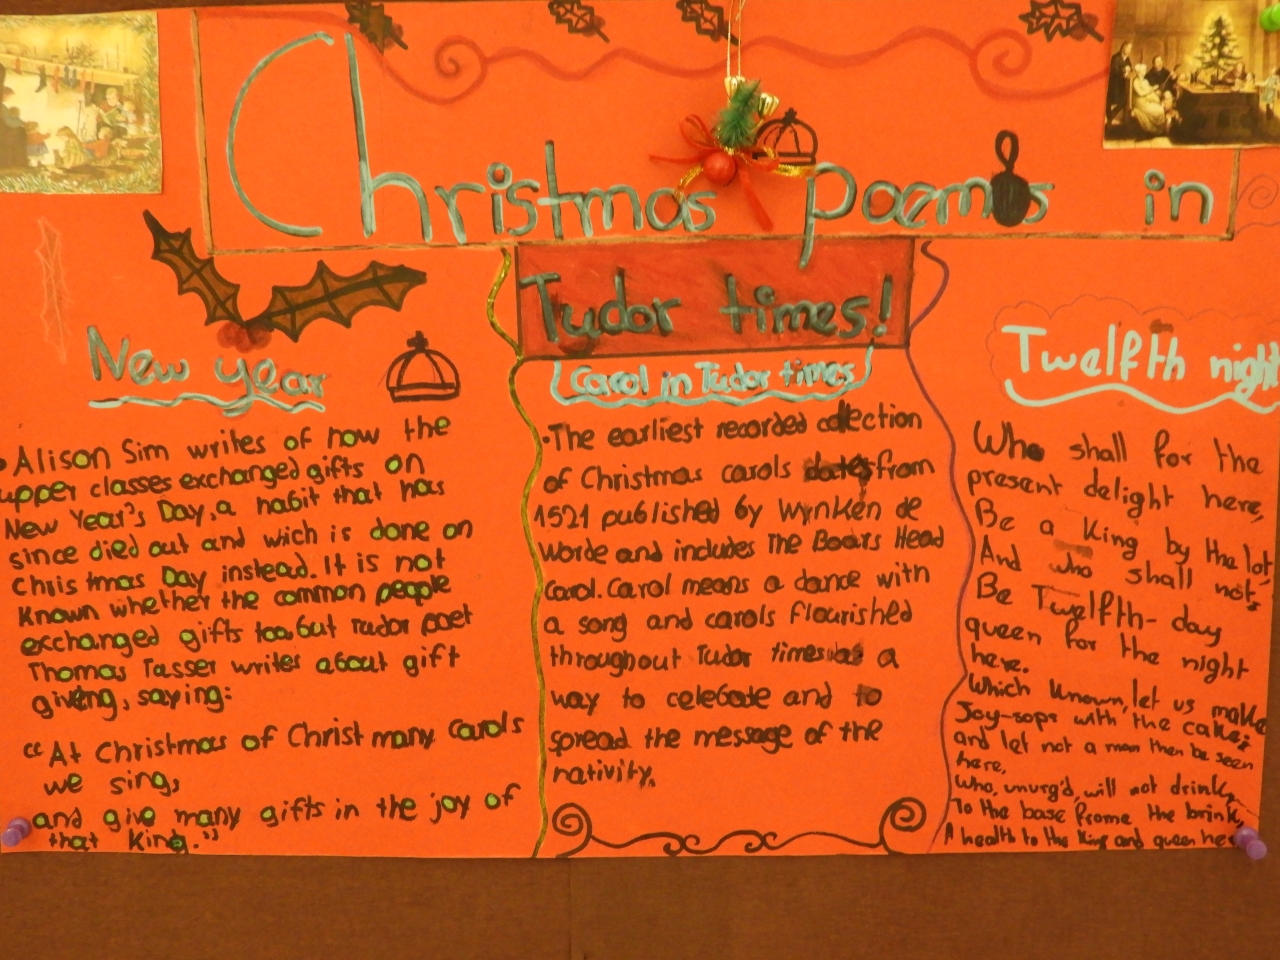 Christmas poems in
Tudor times!
New year
• Alison Sim writes of how the
upper classes exchanged gifts on
New Year's Day, a habit that has
since died out and wich is done on
Christmas Day instead. It is not
known whether the common people
exchanged gifts too, but Tudor poet
Thomas Tasser writes about gift
giving, saying:
"At Christmas of Christ many carols
we sing,
and give many gifts in the joy of
that King."
Carol in Tudor times
•The earliest recorded collection
of Christmas carols dates from
1521 published by Wynken de
Worde and includes The Boars Head
Carol. Carol means a dance with
a song and carols flourished
throughout Tudor times as a
way to celebate and to
spread the message of the
nativity.
Twelfth night
Who shall for the
present delight here,
Be a King by the lot,
And who shall not,
Be Twelfth-day
queen for the night
here.
Which known, let us make
Joy-sops with the cake;
and let not a man then be seen
here,
Who, unurg'd, will not drink,
To the base frome the brink,
A health to the King and queen here